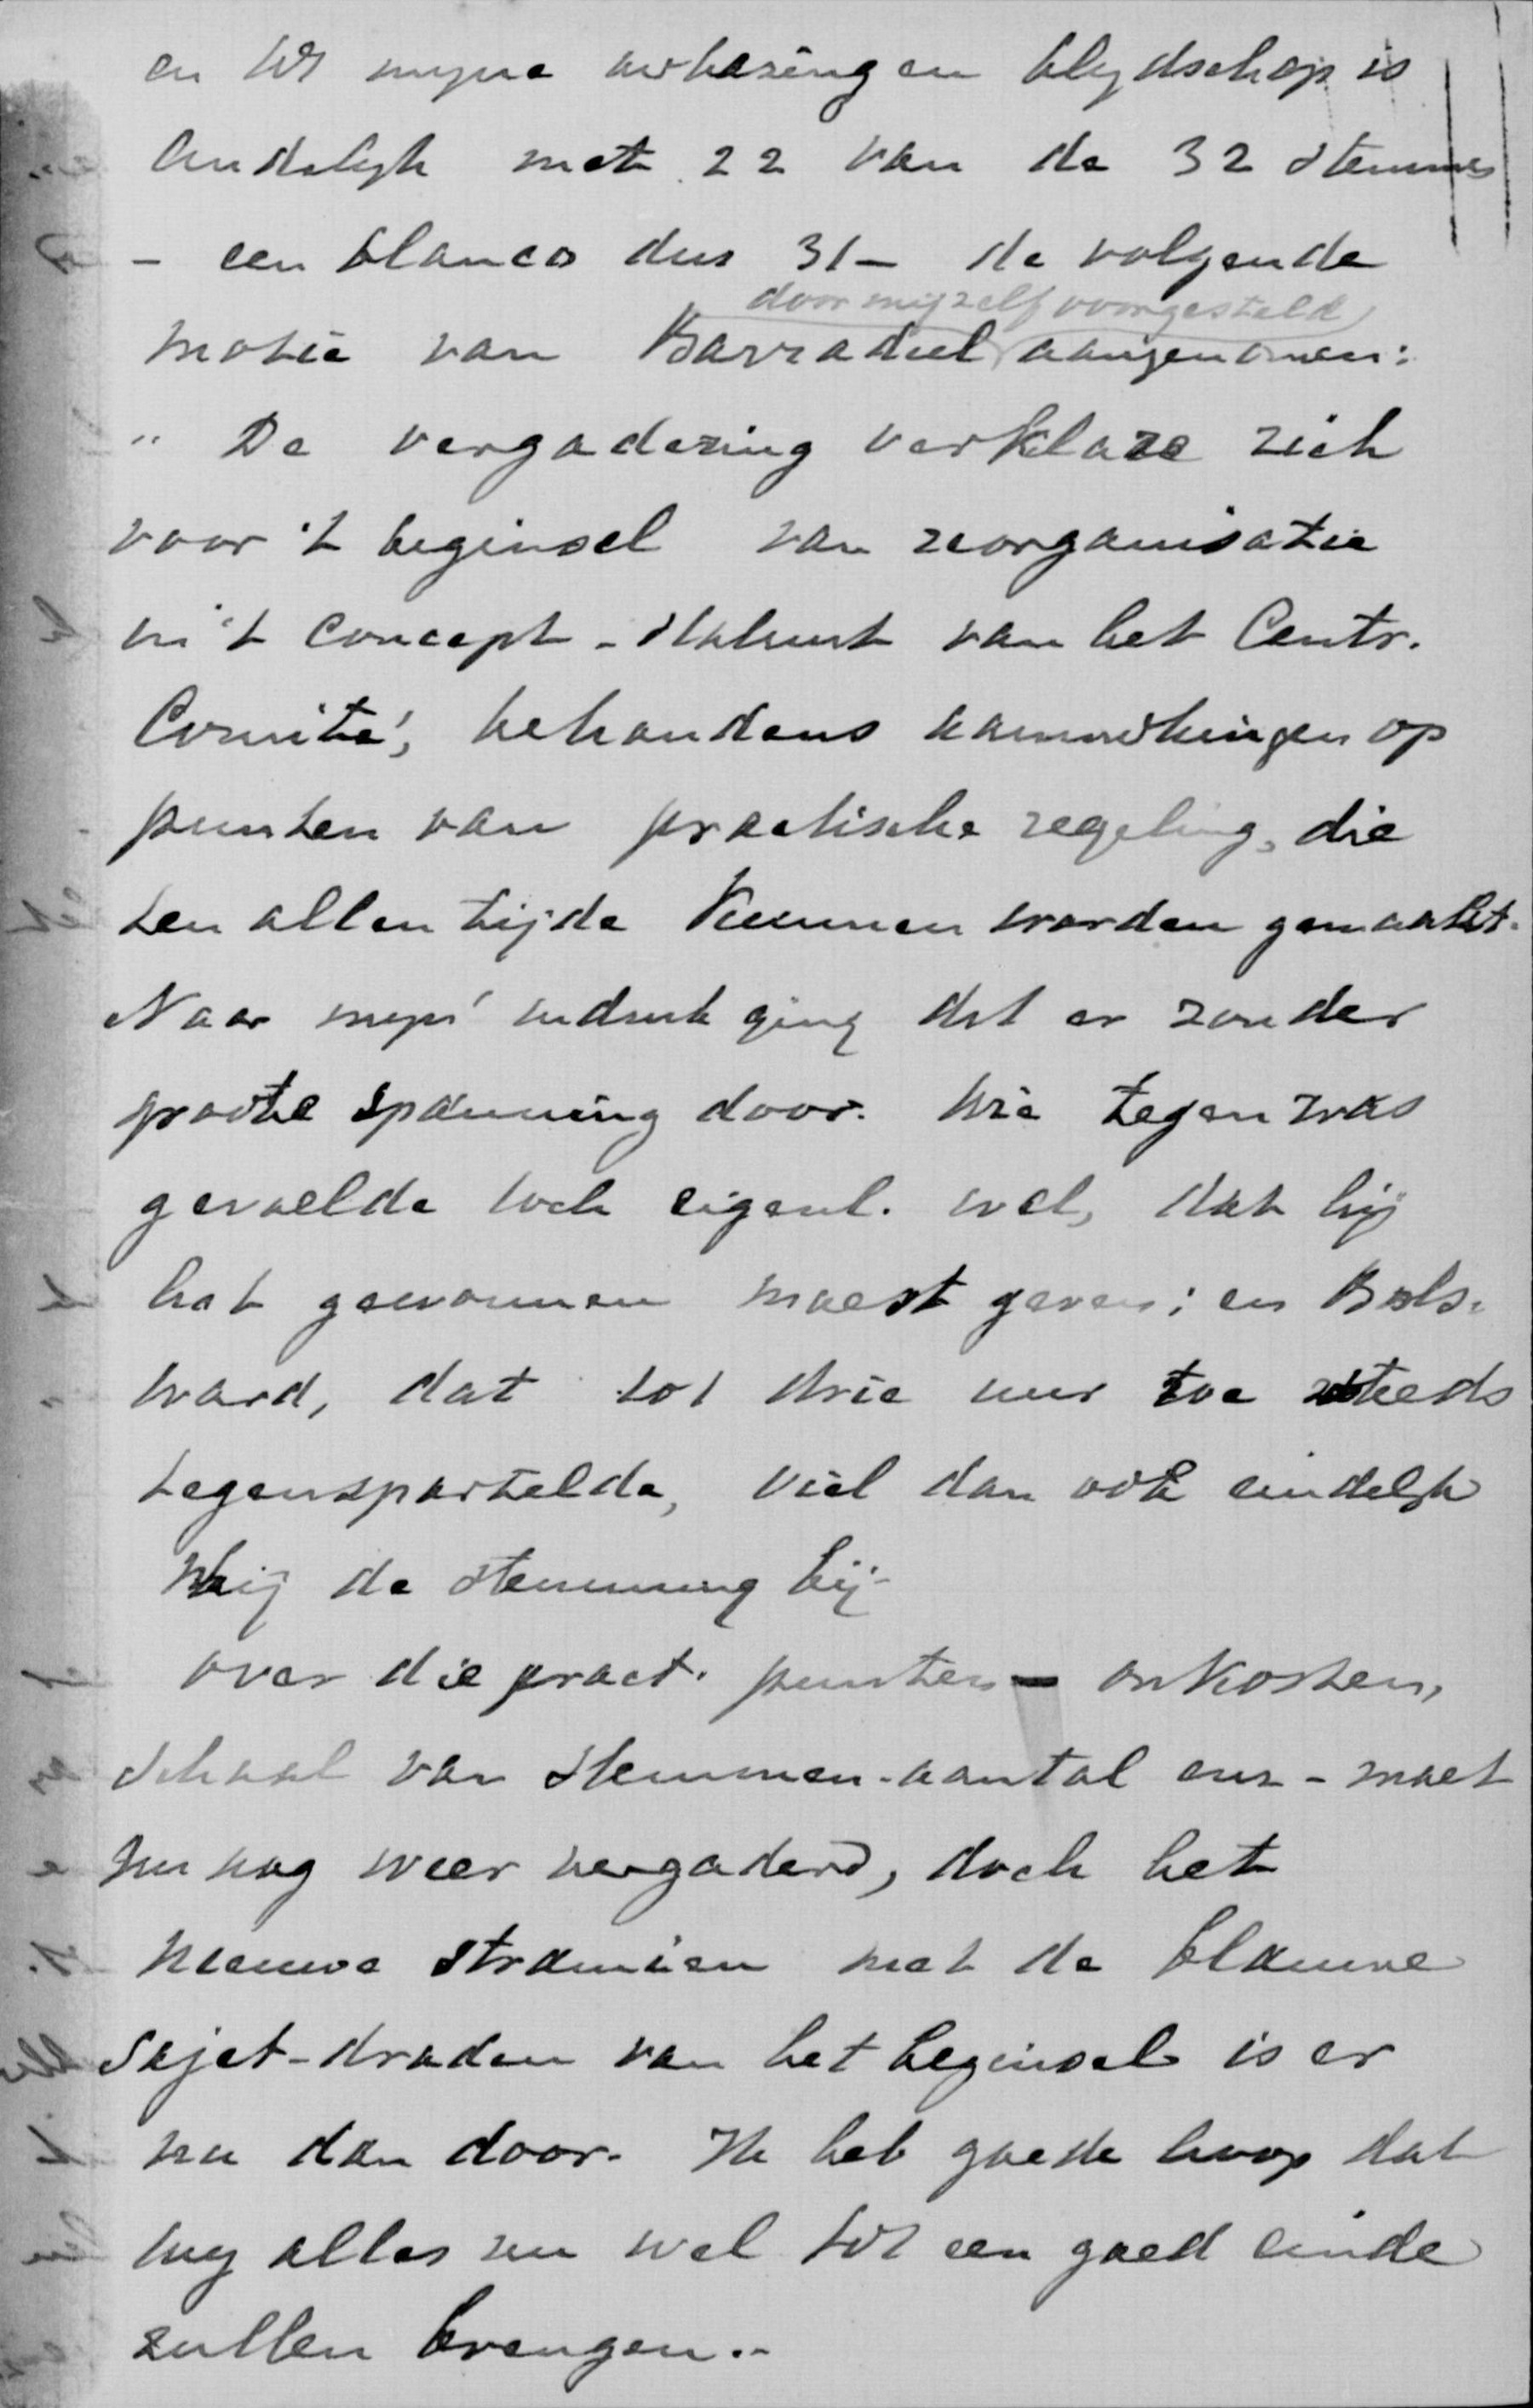 en tot mijne verbazing en blijdschap is
eindelijk met 22 van de 32 stemmen
- een blanco dus 31 - de volgende
door mijzelf voorgesteld
motie van Barradeel aangenomen:
"De vergadering verklare zich
voor 't beginsel van reorganisatie
in 't concept-statuut van het Centr.
Comité, behoudens aanmerkingen op
punten van practische regeling, die
ten allen tijde kunnen worden gemaakt.
Naar mijn indruk ging dit er zonder
groote spanning door. Wie tegen was
gevoelde toch eigenl. wel, dat hij
het gewonnen moest geven; en Bols-
ward, dat tot drie uur toe steeds
tegenspartelde, viel dan ook eindelijk
bij de stemming bij.
Over die pract. punten - onkosten,
schaal van stemmen-aantal enz - moet
nu nog weer vergaderd, doch het
nieuwe stramien met de blauwe
sajet-draden van het beginsel is er
nu dan door. Ik heb goede hoop dat
wij alles nu wel tot een goed einde
zullen brengen.-